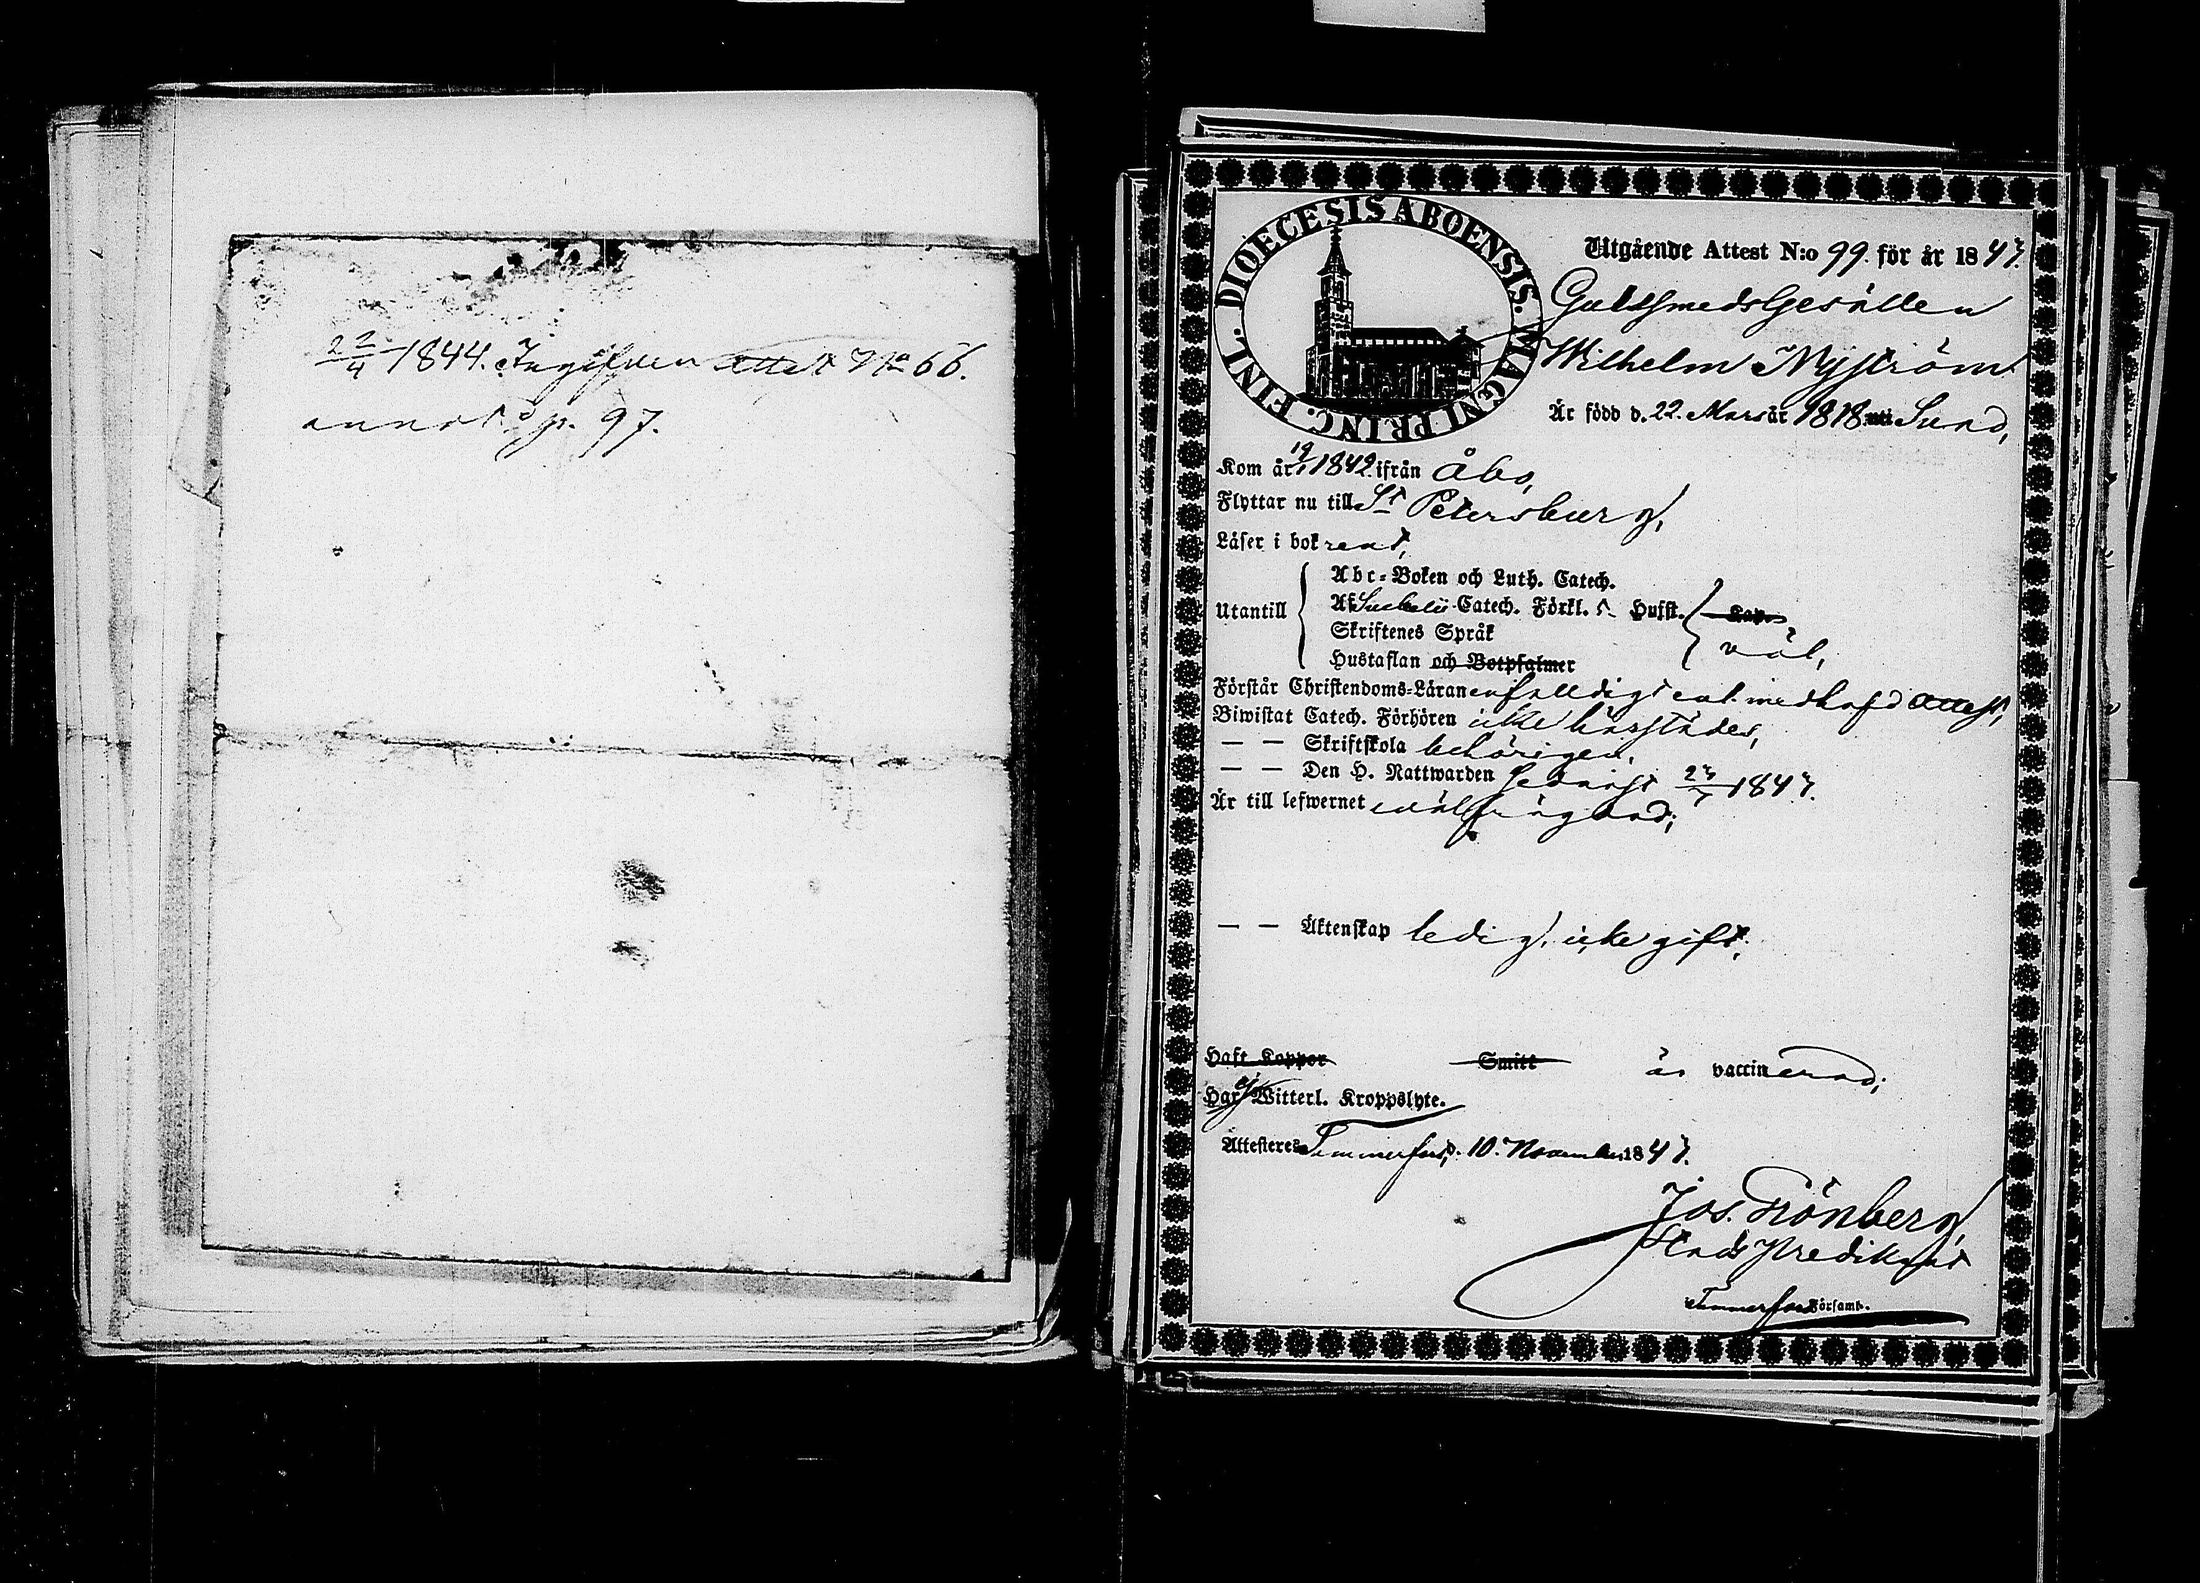 22/4 1844. Ingifven Attest No 66.
annot. p. 97.
DIOECESIS ABOENSIS. MAGNI PRINC. FINL.
Utgående Attest N:o 99. för år 1843.
Guldsmedsgesällen
Wilhelm Nyström
Är född d. 22. Mars år 1818. uti Sund,
Kom år 1842. ifrån Åbo,
Flyttar nu till St Petersburg,
Läser i bok rent,
Utantill
Abc-Boken och Luth. Catech.
Af Svebelii Catech. Förkl. 5 Hufst. Kap.
Skriftenes Språk
Hustaflan och Botpsalmer
väl,
Förstår Christendoms-Läran enfaldigt enl. medhafd Attest,
Biwistat Catech. Förhören icke härstädes,
— — Skriftskola behörigen,
— — Den H. Nattwarden sednast 23/7 1843.
Är till lefwernet wälfrägdad;
— — Äktenskap ledig, icke gift;
Haft Koppor Smitt är vaccinerad;
Har ej Witterl. Kroppslyte.
Attesteres Tammerfors d. 10. November 1843.
Jos. Grönberg
Stads Predikant
Tammerfors Församl.